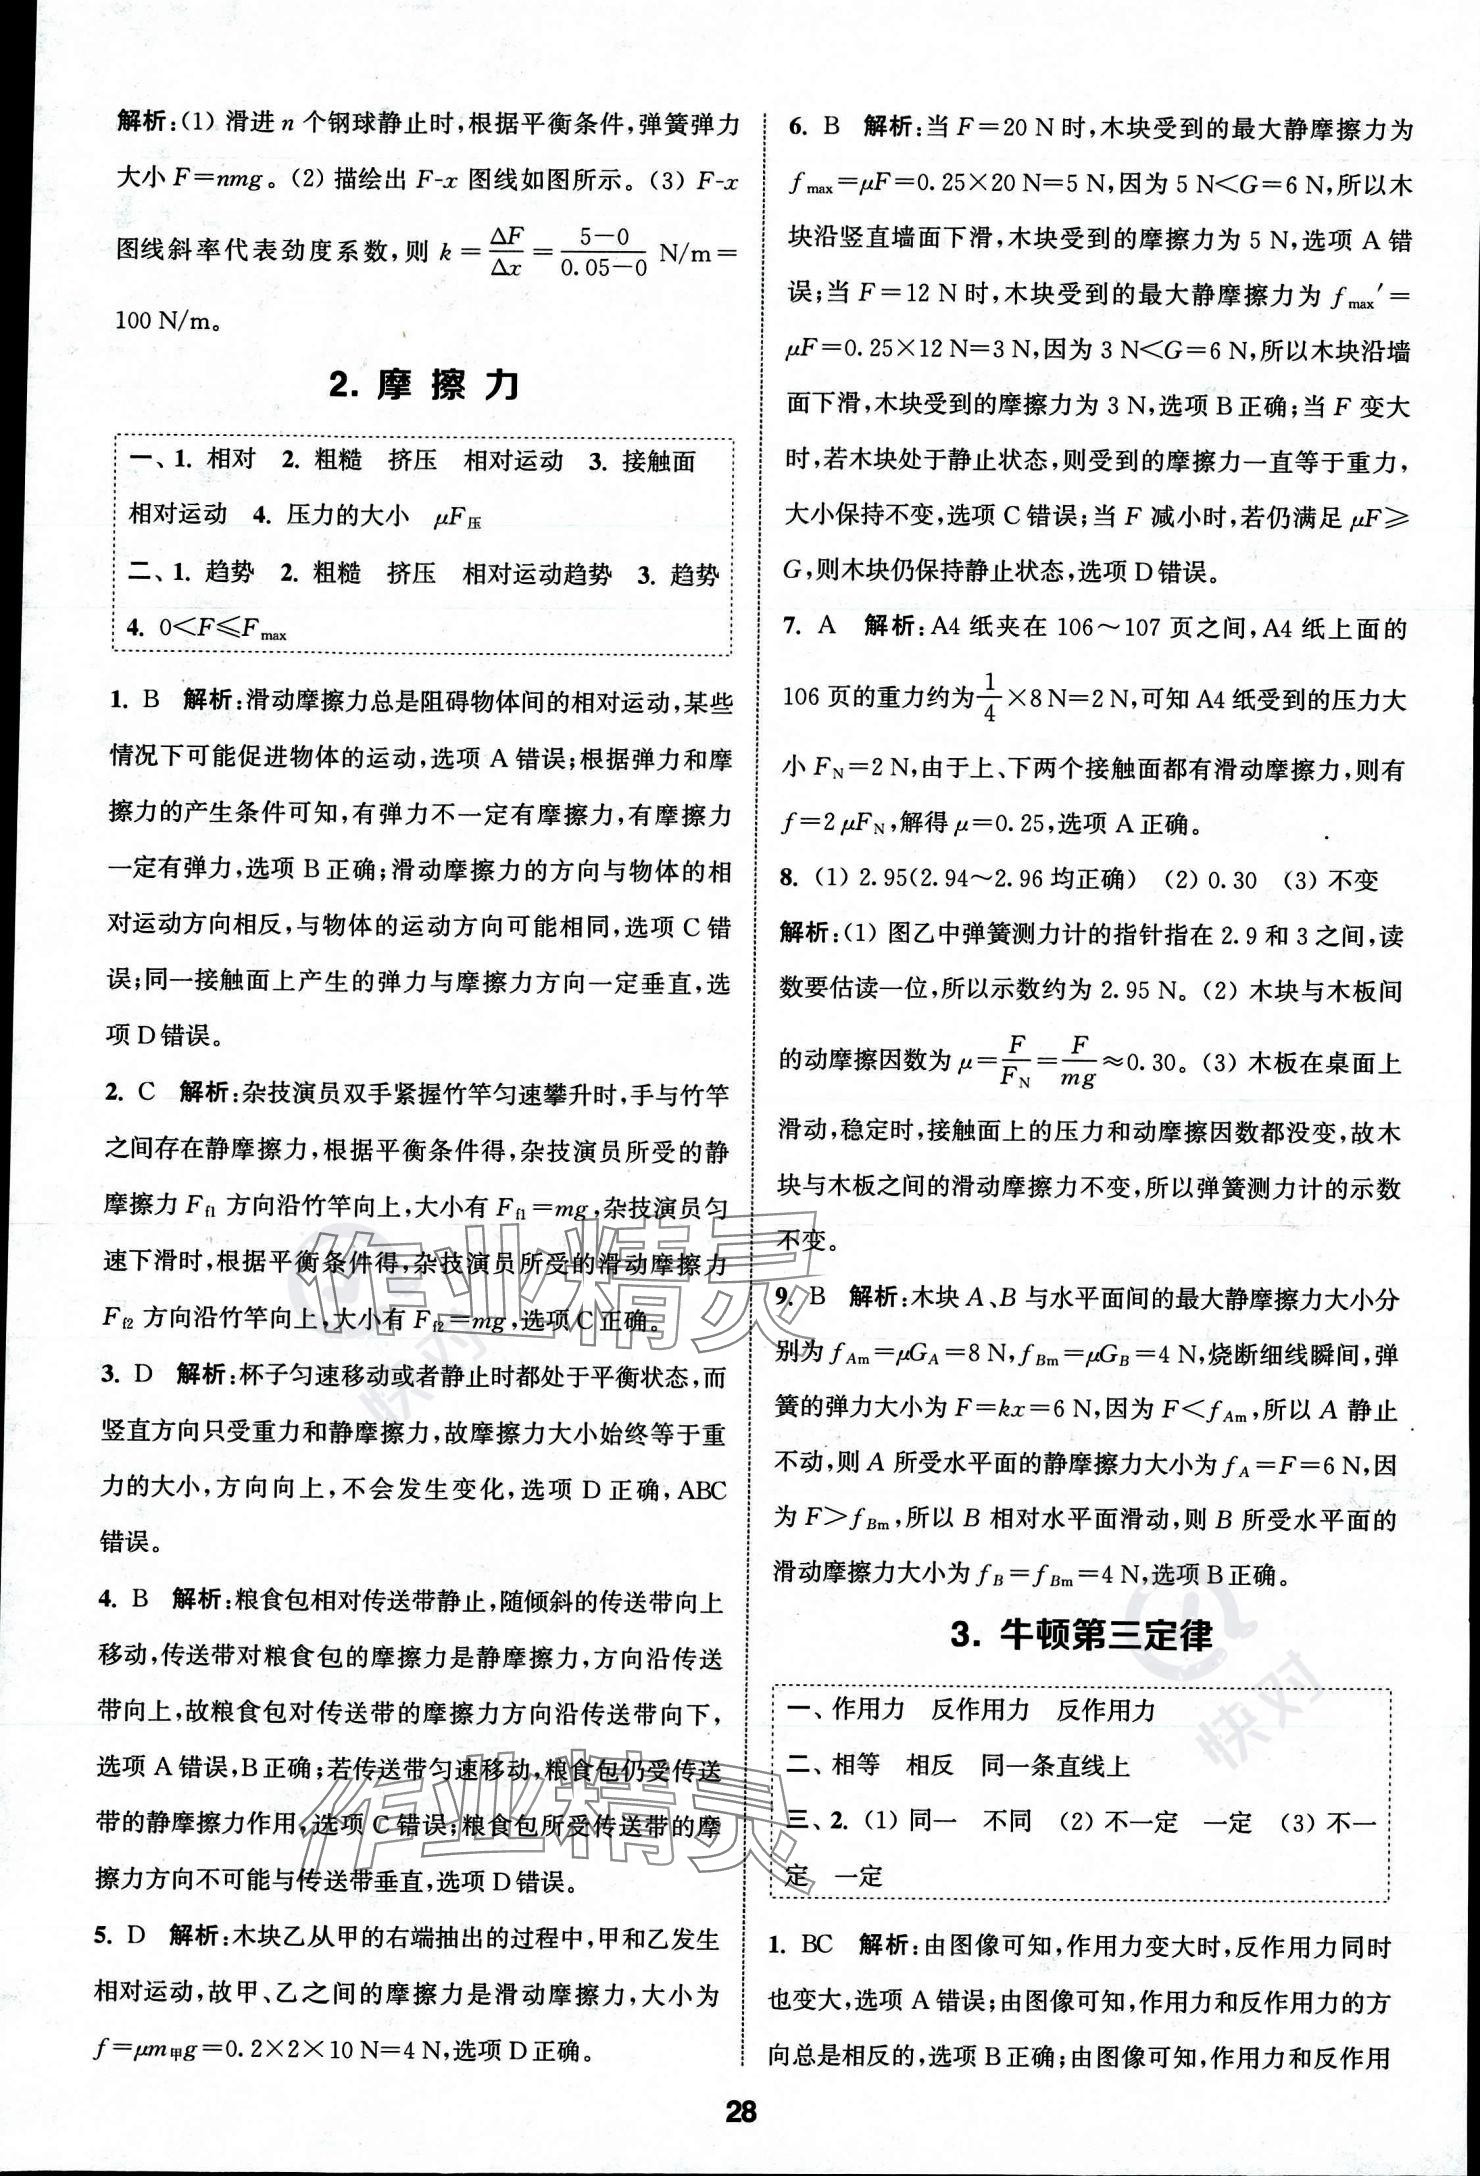 解析:(1) 滑进 n 个钢球静止时,根据平衡条件,弹簧弹力
大小 F=nmg。(2) 描绘出 F-x 图线如图所示。(3) F-x
图线斜率代表劲度系数,则 k=ΔF/Δx=(5-0)/(0.05-0) N/m=
100 N/m。
2. 摩 擦 力
一、1. 相对 2. 粗糙 挤压 相对运动 3. 接触面
相对运动 4. 压力的大小 μF压
二、1. 趋势 2. 粗糙 挤压 相对运动趋势 3. 趋势
4. 0<F⩽Fmax
1. B 解析:滑动摩擦力总是阻碍物体间的相对运动,某些
情况下可能促进物体的运动,选项 A 错误;根据弹力和摩
擦力的产生条件可知,有弹力不一定有摩擦力,有摩擦力
一定有弹力,选项 B 正确;滑动摩擦力的方向与物体的相
对运动方向相反,与物体的运动方向可能相同,选项 C 错
误;同一接触面上产生的弹力与摩擦力方向一定垂直,选
项 D 错误。
2. C 解析:杂技演员双手紧握竹竿匀速攀升时,手与竹竿
之间存在静摩擦力,根据平衡条件得,杂技演员所受的静
摩擦力 Ff1 方向沿竹竿向上,大小有 Ff1=mg,杂技演员匀
速下滑时,根据平衡条件得,杂技演员所受的滑动摩擦力
Ff2 方向沿竹竿向上,大小有 Ff2=mg,选项 C 正确。
3. D 解析:杯子匀速移动或者静止时都处于平衡状态,而
竖直方向只受重力和静摩擦力,故摩擦力大小始终等于重
力的大小,方向向上,不会发生变化,选项 D 正确,ABC
错误。
4. B 解析:粮食包相对传送带静止,随倾斜的传送带向上
移动,传送带对粮食包的摩擦力是静摩擦力,方向沿传送
带向上,故粮食包对传送带的摩擦力方向沿传送带向下,
选项 A 错误,B 正确;若传送带匀速移动,粮食包仍受传送
带的静摩擦力作用,选项 C 错误;粮食包所受传送带的摩
擦力方向不可能与传送带垂直,选项 D 错误。
5. D 解析:木块乙从甲的右端抽出的过程中,甲和乙发生
相对运动,故甲、乙之间的摩擦力是滑动摩擦力,大小为
f=μm甲g=0.2×2×10 N=4 N,选项 D 正确。
6. B 解析:当 F=20 N 时,木块受到的最大静摩擦力为
fmax=μF=0.25×20 N=5 N,因为 5 N<G=6 N,所以木
块沿竖直墙面下滑,木块受到的摩擦力为 5 N,选项 A 错
误;当 F=12 N 时,木块受到的最大静摩擦力为 fmax′=
μF=0.25×12 N=3 N,因为 3 N<G=6 N,所以木块沿墙
面下滑,木块受到的摩擦力为 3 N,选项 B 正确;当 F 变大
时,若木块处于静止状态,则受到的摩擦力一直等于重力,
大小保持不变,选项 C 错误;当 F 减小时,若仍满足 μF⩾
G,则木块仍保持静止状态,选项 D 错误。
7. A 解析:A4 纸夹在 106~107 页之间,A4 纸上面的
106 页的重力约为1/4×8 N=2 N,可知 A4 纸受到的压力大
小 FN=2 N,由于上、下两个接触面都有滑动摩擦力,则有
f=2μFN,解得 μ=0.25,选项 A 正确。
8. (1) 2.95(2.94~2.96 均正确) (2) 0.30 (3) 不变
解析:(1) 图乙中弹簧测力计的指针指在 2.9 和 3 之间,读
数要估读一位,所以示数约为 2.95 N。(2) 木块与木板间
的动摩擦因数为 μ=F/FN=F/mg≈0.30。(3) 木板在桌面上
滑动,稳定时,接触面上的压力和动摩擦因数都没变,故木
块与木板之间的滑动摩擦力不变,所以弹簧测力计的示数
不变。
9. B 解析:木块 A、B 与水平面间的最大静摩擦力大小分
别为 fAm=μGA=8 N,fBm=μGB=4 N,烧断细线瞬间,弹
簧的弹力大小为 F=kx=6 N,因为 F<fAm,所以 A 静止
不动,则 A 所受水平面的静摩擦力大小为 fA=F=6 N,因
为 F>fBm,所以 B 相对水平面滑动,则 B 所受水平面的
滑动摩擦力大小为 fB=fBm=4 N,选项 B 正确。
3. 牛顿第三定律
一、作用力 反作用力 反作用力
二、相等 相反 同一条直线上
三、2. (1) 同一 不同 (2) 不一定 一定 (3) 不一
定 一定
1. BC 解析:由图像可知,作用力变大时,反作用力同时
也变大,选项 A 错误;由图像可知,作用力和反作用力的方
向总是相反的,选项 B 正确;由图像可知,作用力和反作用
28
作业精灵
快对
作业精灵
快对